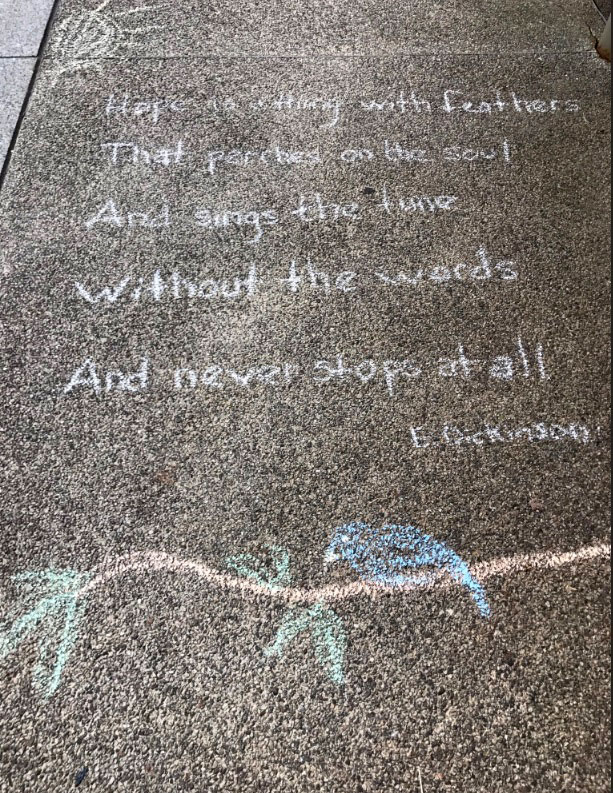 Hope is a thing with feathers
That perches on the soul
And sings the tune
Without the words
And never stops at all
E. Dickinson